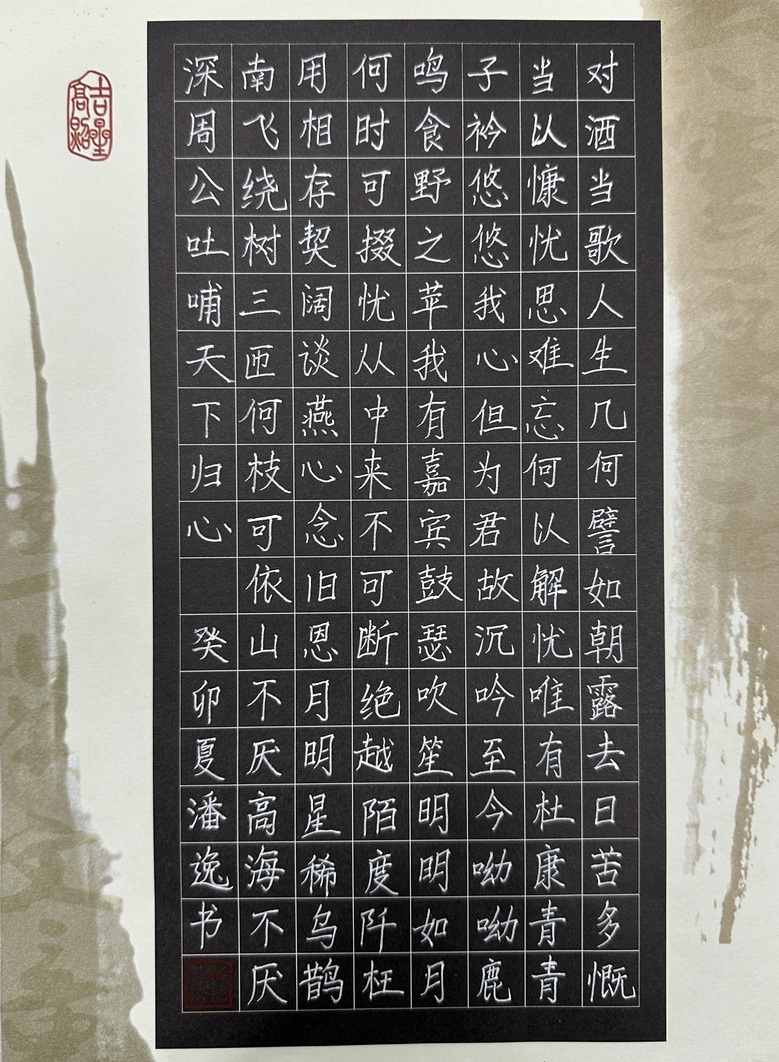 对酒当歌人生几何譬如朝露去日苦多慨
当以慷忧思难忘何以解忧唯有杜康青青
子衿悠悠我心但为君故沉吟至今呦呦鹿
鸣食野之苹我有嘉宾鼓瑟吹笙明明如月
何时可掇忧从中来不可断绝越陌度阡枉
用相存契阔谈燕心念旧恩月明星稀乌鹊
南飞绕树三匝何枝可依山不厌高海不厌
深周公吐哺天下归心 癸卯夏潘逸书
吉星高照